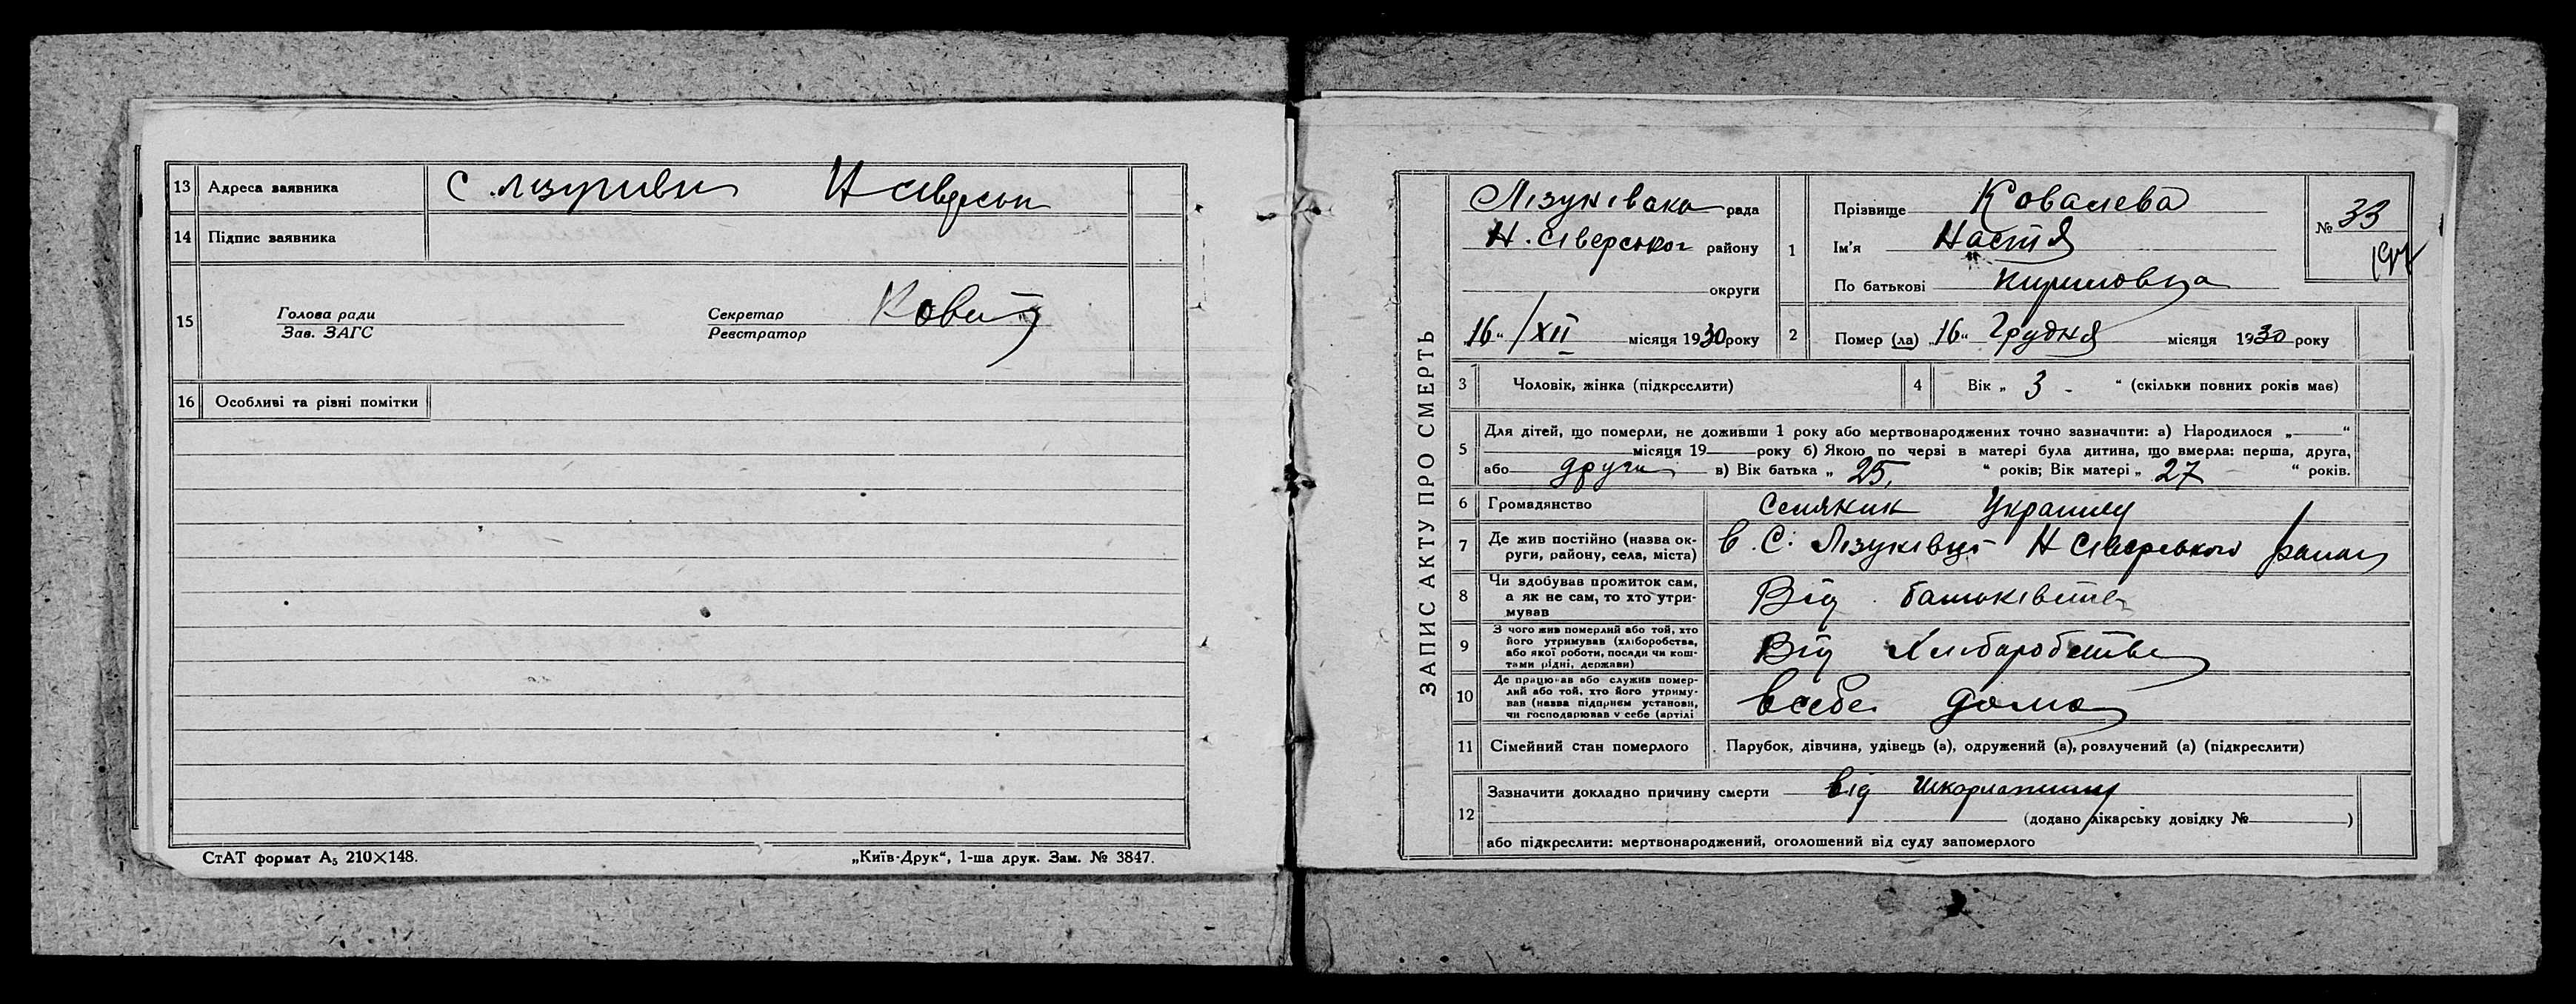 13 Адреса заявника С Лізуновки Н Сіверськ
14 Підпис заявника
15 Голова ради Секретар
Зав. ЗАГС Реєстратор
16 Особливі та різні помітки
СтАТ формат А₅ 210×148. „Київ-Друк“, 1-ша друк. Зам. № 3847.
ЗАПИС АКТУ ПРО СМЕРТЬ
Лізунівска рада
Н. Сіверського району
округи
„16“ /XII місяця 1930 року
1 Прізвище Ковалева
Ім'я Настя
По батькові Кириловна
№ 33
2 Помер (ла) „16“ Грудня місяця 1930 року
3 Чоловік, жінка (підкреслити)
4 Вік „ 3 - “ (скільки повних років має)
5 Для дітей, що померли, не доживши 1 року або мертвонароджених точно зазначити: а) Народилося „ “
місяця 19 року б) Якою по черзі в матері була дитина, що вмерла: перша, друга,
або друга в) Вік батька „ 25, “ років; Вік матері „ 27 “ років.
6 Громадянство Селянин
7 Де жив постійно (назва ок-
руги, району, села, міста) в. С. Лізунівці Н Сіверського району
8 Чи здобував прожиток сам,
а як не сам, то хто утри-
мував Від батьківства
9 З чого жив померлий або той, хто
його утримував (хліборобства,
або якої роботи, посади чи кош-
тами рідні, держави) Від Хлиборобства
10 Де працював або служив помер-
лий або той, хто його утриму-
вав (назва підприєм установи,
чи господарював у себе (артілі в себе дома
11 Сімейний стан померлого Парубок, дівчина, удівець (а), одружений (а), розлучений (а) (підкреслити)
12 Зазначити докладно причину смерти від шкорлатини
(додано лікарську довідку № )
або підкреслити: мертвонароджений, оголошений від суду запомерлого